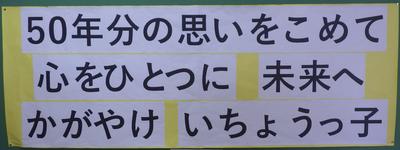 50年分の思いをこめて
心をひとつに 未来へ
かがやけ いちょうっ子